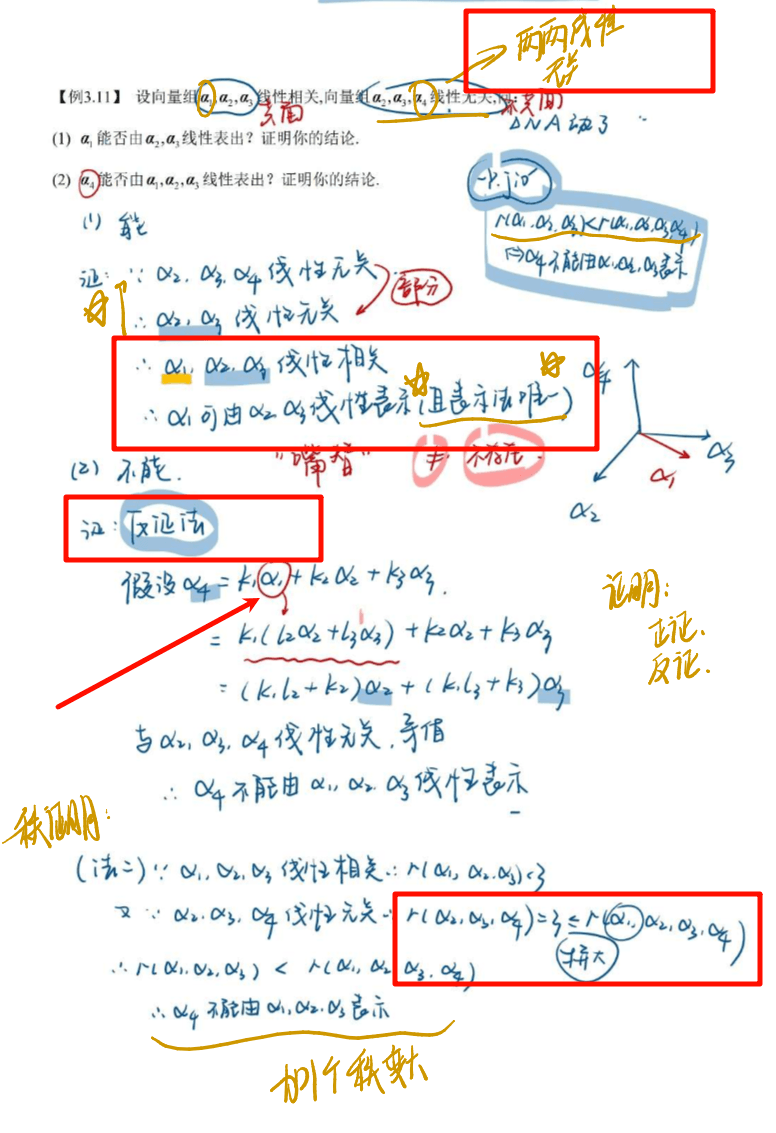 两两线性
无关
【例3.11】 设向量组α₁,α₂,α₃线性相关,向量组α₂,α₃,α₄线性无关,问:
共面
不共面
DNA动了
(1) α₁能否由α₂,α₃线性表出？证明你的结论.
(2) α₄能否由α₁,α₂,α₃线性表出？证明你的结论.
r(α₁,α₂,α₃)<r(α₁,α₂,α₃,α₄)
⇔α₄不能由α₁,α₂,α₃表示
(1) 能
证: ∵ α₂, α₃, α₄ 线性无关
部分
∴ α₂, α₃ 线性无关
∴ α₁, α₂, α₃ 线性相关
∴ α₁可由α₂ α₃线性表示(且表示法唯一)
α₄
α₃
α₁
α₂
"嘴替" ≠ 不存在.
(2) 不能.
证: 反证法
假设 α₄ = k₁α₁ + k₂α₂ + k₃α₃.
= k₁(l₂α₂+l₃α₃) + k₂α₂ + k₃α₃
= (k₁l₂+k₂)α₂ + (k₁l₃+k₃)α₃
证明:
正证.
反证.
与α₂, α₃, α₄线性无关, 矛盾
∴ α₄不能由α₁, α₂, α₃线性表示
秩证明:
(法二) ∵ α₁, α₂, α₃ 线性相关 ∴ r(α₁, α₂, α₃)<3
又 ∵ α₂, α₃, α₄ 线性无关 ∴ r(α₂, α₃, α₄)=3 ≤ r(α₁, α₂, α₃, α₄)
拼大
∴ r(α₁, α₂, α₃) < r(α₁, α₂, α₃, α₄)
∴ α₄不能由α₁, α₂, α₃表示
加1个秩变大